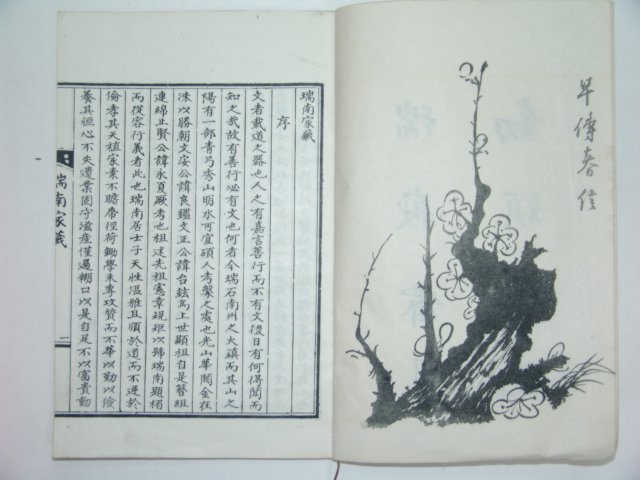 早傳春信
瑞南家藏
序
文者載道之器也人之有嘉言善行而不有文後日有何得聞而
知之哉故有善行必有文也何者今瑞石南州之大鎭而其山之
陽有一部青乃秀山明水可宜碩人考槃之處也光山華閥金在
洙以勝朝文安公諱良鑑文正公諱台鉉爲上世顯祖自是簪組
連綿止賢公諱永夏厥考也祖述先祖憲章規矩以號瑞南顯楣
而從容行義者此也瑞南居士子天性溫雅且順於道而不逆於
倫孝其天植家素不贍帶徑荷鋤學未專攻質而不華以勤以儉
養其恒心不失遺業固守滋産僅過糊口以是自足不以富貴動
瑞南家藏
一